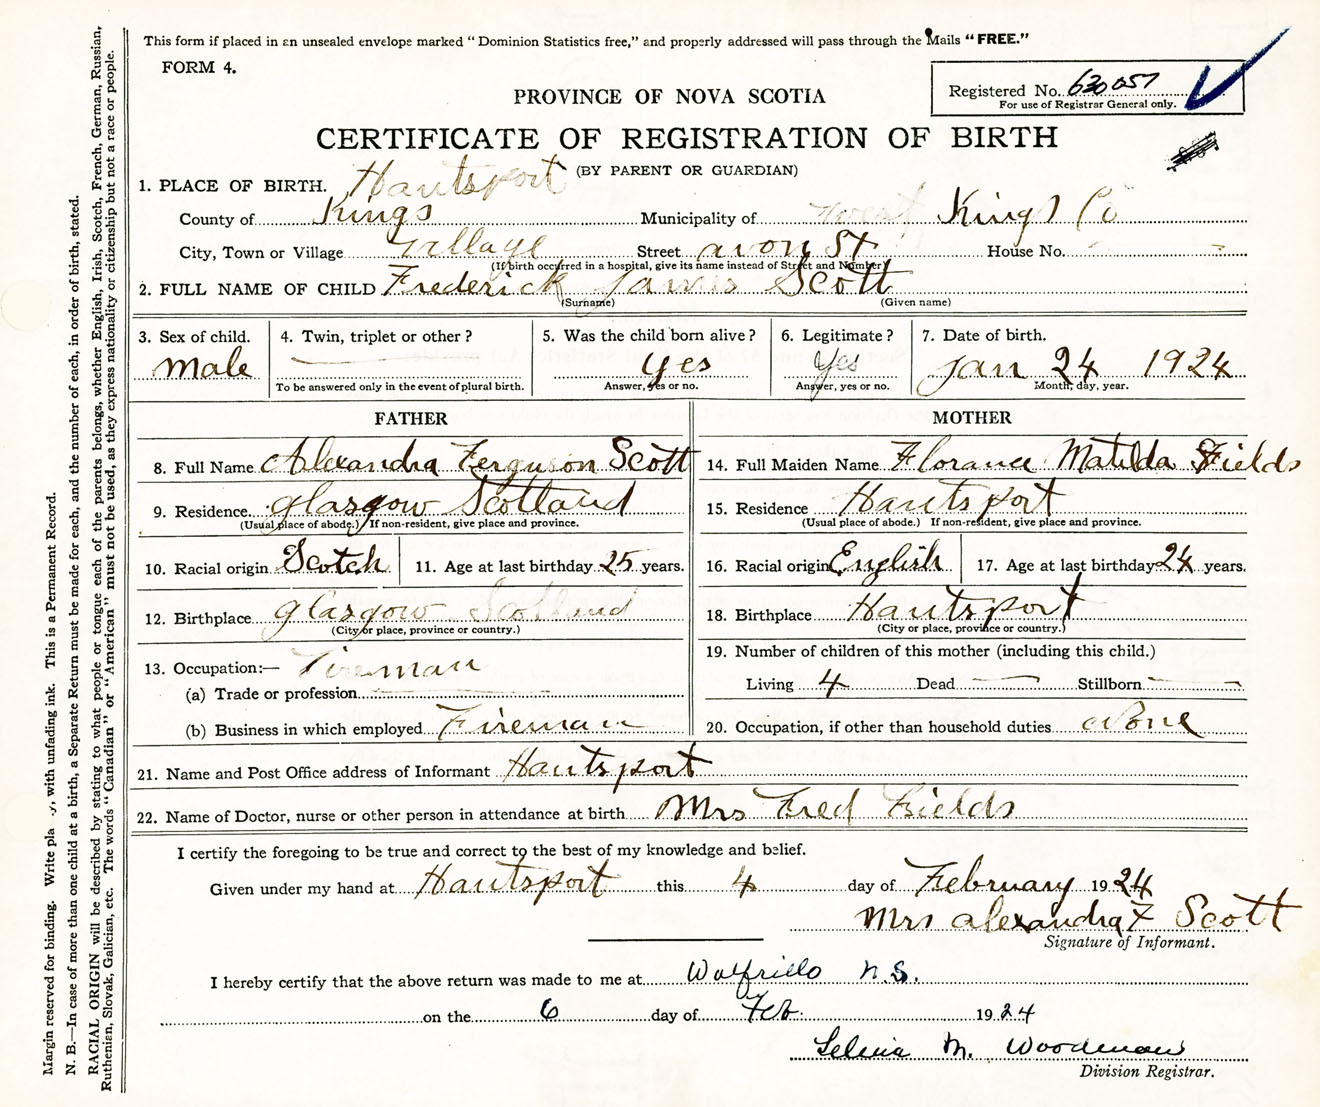 This form if placed in an unsealed envelope marked "Dominion Statistics free," and properly addressed will pass through the Mails "FREE."
FORM 4.
Registered No. 630057
For use of Registrar General only.
PROVINCE OF NOVA SCOTIA
CERTIFICATE OF REGISTRATION OF BIRTH
(BY PARENT OR GUARDIAN)
1. PLACE OF BIRTH. Hantsport
County of Kings Municipality of West Kings Co
City, Town or Village Village Street Avon St House No.
(If birth occurred in a hospital, give its name instead of Street and Number)
2. FULL NAME OF CHILD Frederick James Scott
(Surname) (Given name)
3. Sex of child. 4. Twin, triplet or other? 5. Was the child born alive? 6. Legitimate? 7. Date of birth.
male yes yes Jan 24 1924
To be answered only in the event of plural birth. Answer, yes or no. Answer, yes or no. Month, day, year.
FATHER MOTHER
8. Full Name Alexandra Ferguson Scott 14. Full Maiden Name Florance Matilda Fields
9. Residence glasgow Scotland 15. Residence Hantsport
(Usual place of abode.) If non-resident, give place and province. (Usual place of abode.) If non-resident, give place and province.
10. Racial origin Scotch 11. Age at last birthday 25 years. 16. Racial origin English 17. Age at last birthday 24 years.
12. Birthplace glasgow Scotland 18. Birthplace Hantsport
(City or place, province or country.) (City or place, province or country.)
13. Occupation:— Fireman 19. Number of children of this mother (including this child.)
(a) Trade or profession Living 4 Dead — Stillborn —
(b) Business in which employed Fireman 20. Occupation, if other than household duties None
21. Name and Post Office address of Informant Hantsport
22. Name of Doctor, nurse or other person in attendance at birth Mrs Fred Fields
I certify the foregoing to be true and correct to the best of my knowledge and belief.
Given under my hand at Hantsport this 4 day of February 1924
Mrs alexandra F Scott
Signature of Informant.
I hereby certify that the above return was made to me at Wolfville N.S.
on the 6 day of Feb. 1924
Selina M. Woodman
Division Registrar.
Margin reserved for binding. Write plainly, with unfading ink. This is a Permanent Record.
N. B.—In case of more than one child at a birth, a Separate Return must be made for each, and the number of each, in order of birth, stated.
RACIAL ORIGIN will be described by stating to what people or tongue each of the parents belongs, whether English, Irish, Scotch, French, German, Russian,
Ruthenian, Slovak, Galician, etc. The words "Canadian" or "American" must not be used, as they express nationality or citizenship but not a race or people.